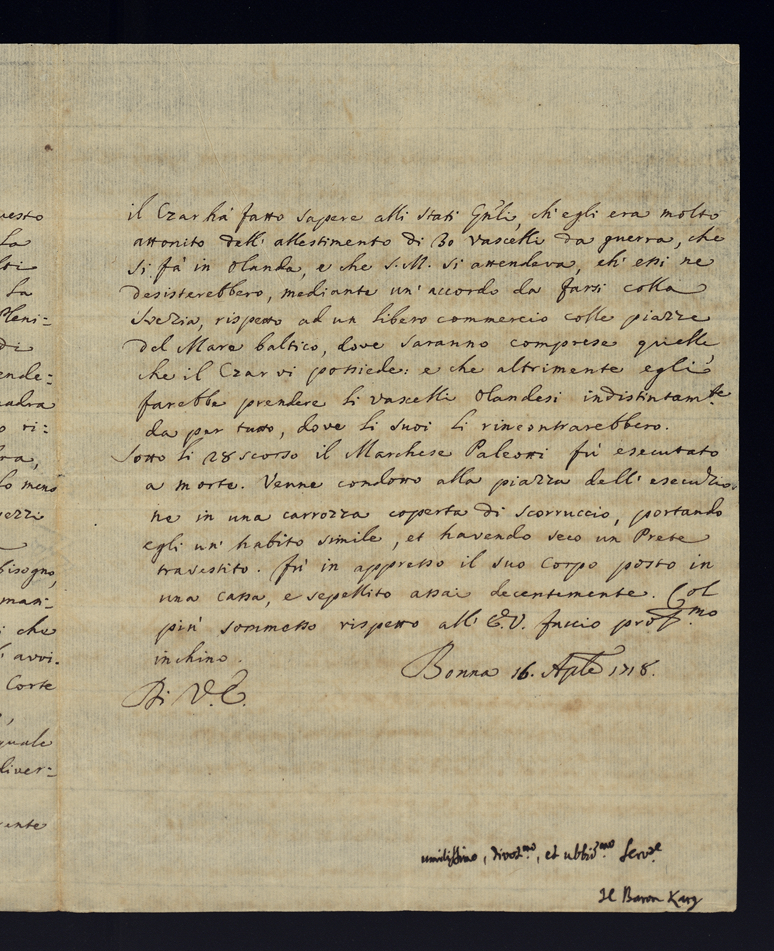 uesto
La
La
Pleni=
di
ende=
uadra
o ri=
bra,
lo meno
vezzi
bisogno,
man=
i che
l' avvi.
Corte
quale
diver=
ente
il Czar há fatto sapere alli Stati Gn̄li, ch'egli era molto
attonito dell' allestimento di 30 vascelli da guerra, che
si fá in Olanda, e che S.M. si attendeva, ch' essi ne
desisterebbero, mediante un' accordo da farsi colla
Svezia, rispetto ad un libero commercio colle piazze
del Mare baltico, dove saranno comprese quelle
che il Czar vi possiede: e che altrimente egli
farebbe prendere li vascelli Olandesi indistintam.te
da per tutto, dove li suoi li rincontrarebbero.
Sotto li 28 scorso il Marchese Paleotti fú esecutato
a morte. Venne condotto alla piazza dell' esecuzio-
ne in una carrozza coperta di scorruccio, portando
egli un' habito simile, et havendo seco un Prete
travestito. fú in appresso il suo Corpo posto in
una cassa, e sepellito assai decentemente. Col
piú sommesso rispetto all' E.V. faccio prof.mo
inchino.
Bonna 16. Aple 1718.
Di V.E.
umilissimo, divot.mo, et ubbid.mo Serv.e
Il Baron Karg